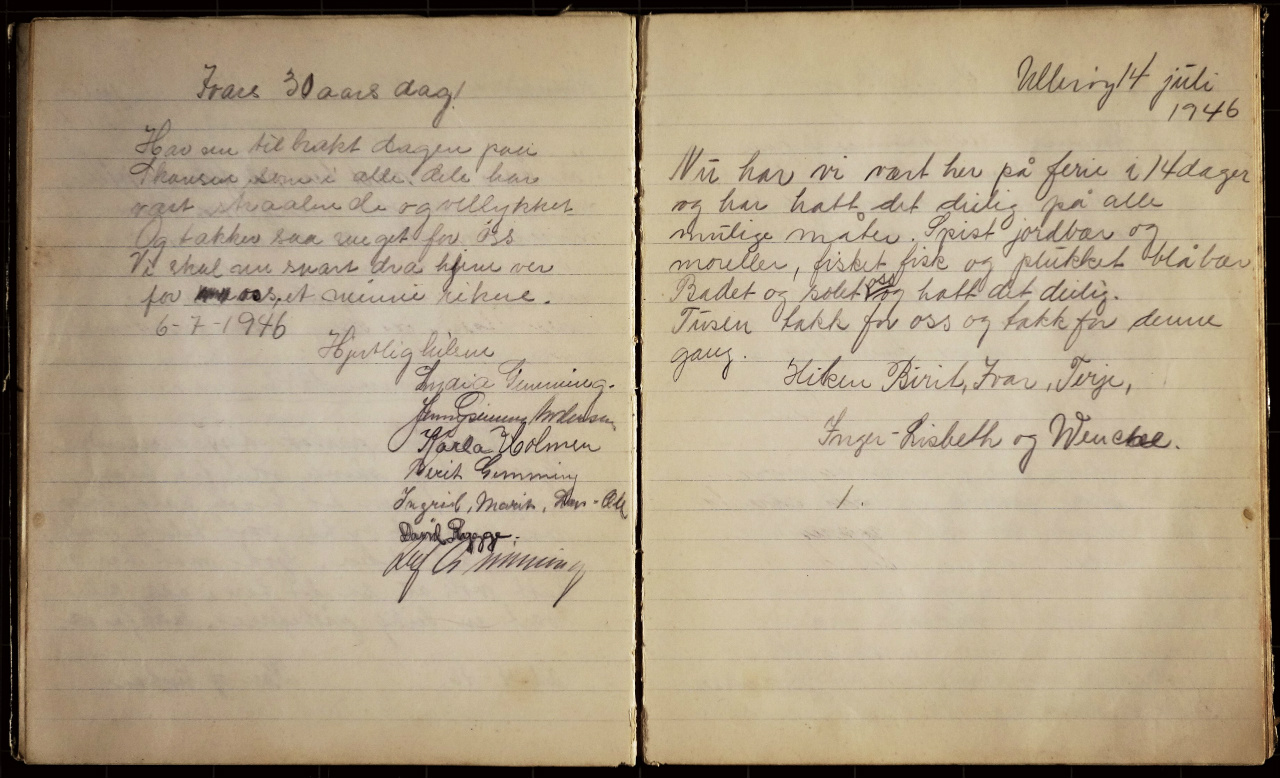 Ivars 30 aars dag!
Har nu tilbrakt dagen paa
som i alle dele har
vært straalende og vellykket
Og takker saa meget for oss
Vi skal nu snart dra hjem ver
for oss, et minne rikere.
6-7-1946
Hjertlig hilsen
Lydia Gemming.
Karla Holmen
Berit Gemming
Ingrid, Marit,
David Rygge.
Leif Gemming
Ullerøy 14 juli
1946
Nu har vi vært her på ferie i 14 dager
og har hatt det deilig på alle
mulige måter. Spist jordbær og
moreller, fisket fisk og plukket blåbær
Badet og solet oss og hatt det deilig.
Tusen takk for oss og takk for denne
gang.
Hilsen Berit, Ivar, Terje,
Inger-Lisbeth og Wenche.
1.